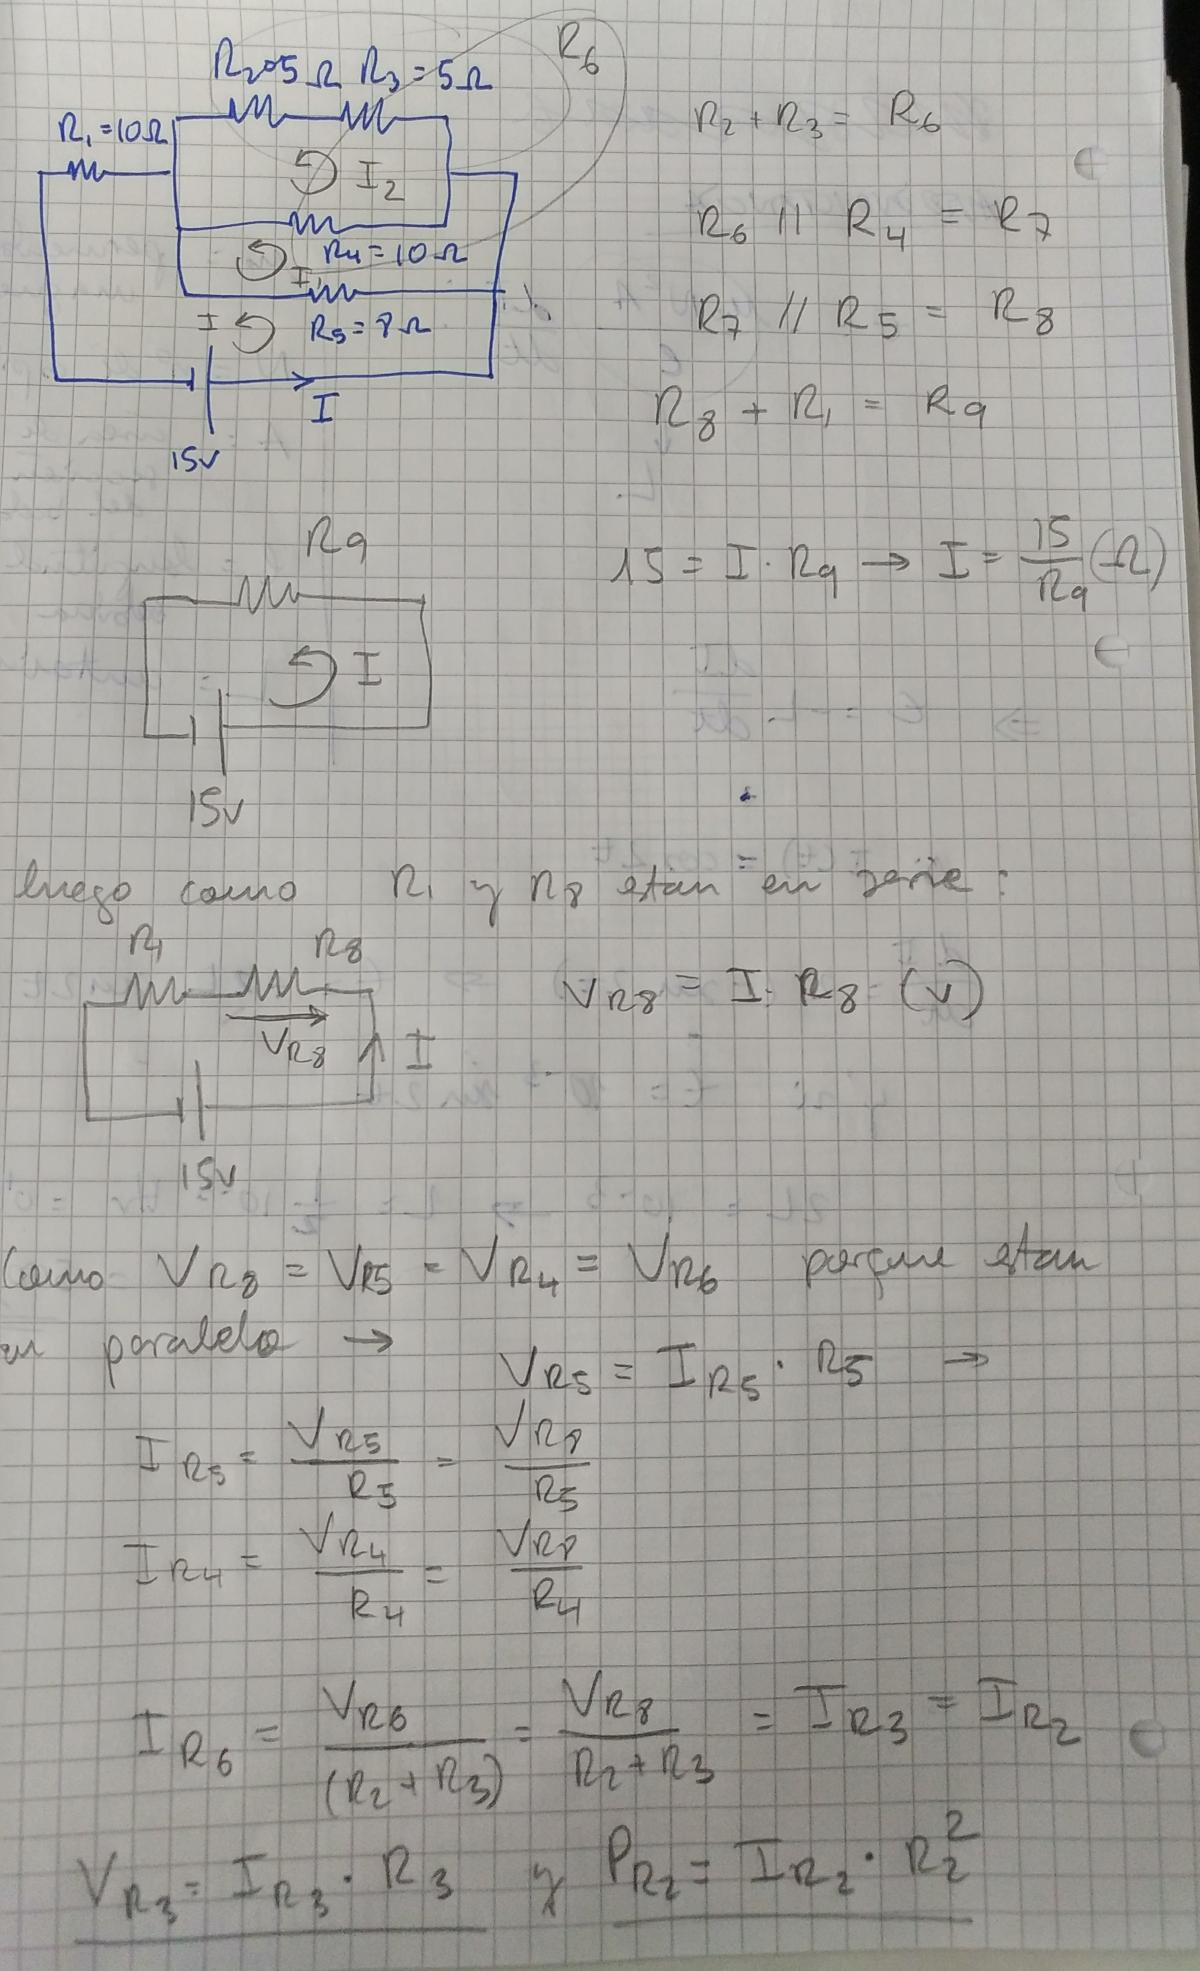 R₂=5Ω R₃=5Ω
R₆
R₁=10Ω
I₂
R₄=10Ω
I₁
R₅=8Ω
I
I
15v
R₂ + R₃ = R₆
R₆ // R₄ = R₇
R₇ // R₅ = R₈
R₈ + R₁ = R₉
R₉
I
15v
15 = I · R₉ → I = 15/R₉ (Ω)
luego como R₁ y R₈ estan en serie :
R₁ R₈
V_R₈
I
15v
V_R₈ = I · R₈ (v)
Como V_R₈ = V_R₅ = V_R₄ = V_R₆ porque estan
en paralelo →
V_R₅ = I_R₅ · R₅ →
I_R₅ = V_R₅/R₅ = V_R₈/R₅
I_R₄ = V_R₄/R₄ = V_R₈/R₄
I_R₆ = V_R₆/(R₂ + R₃) = V_R₈/R₂ + R₃ = I_R₃ = I_R₂
V_R₃ = I_R₃ · R₃ y P_R₂ = I_R₂ · R₂²